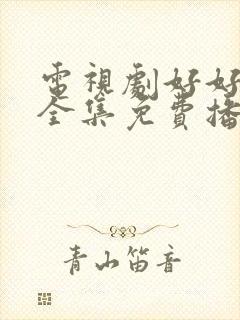 電視劇好好
全集免費播
青山笛音